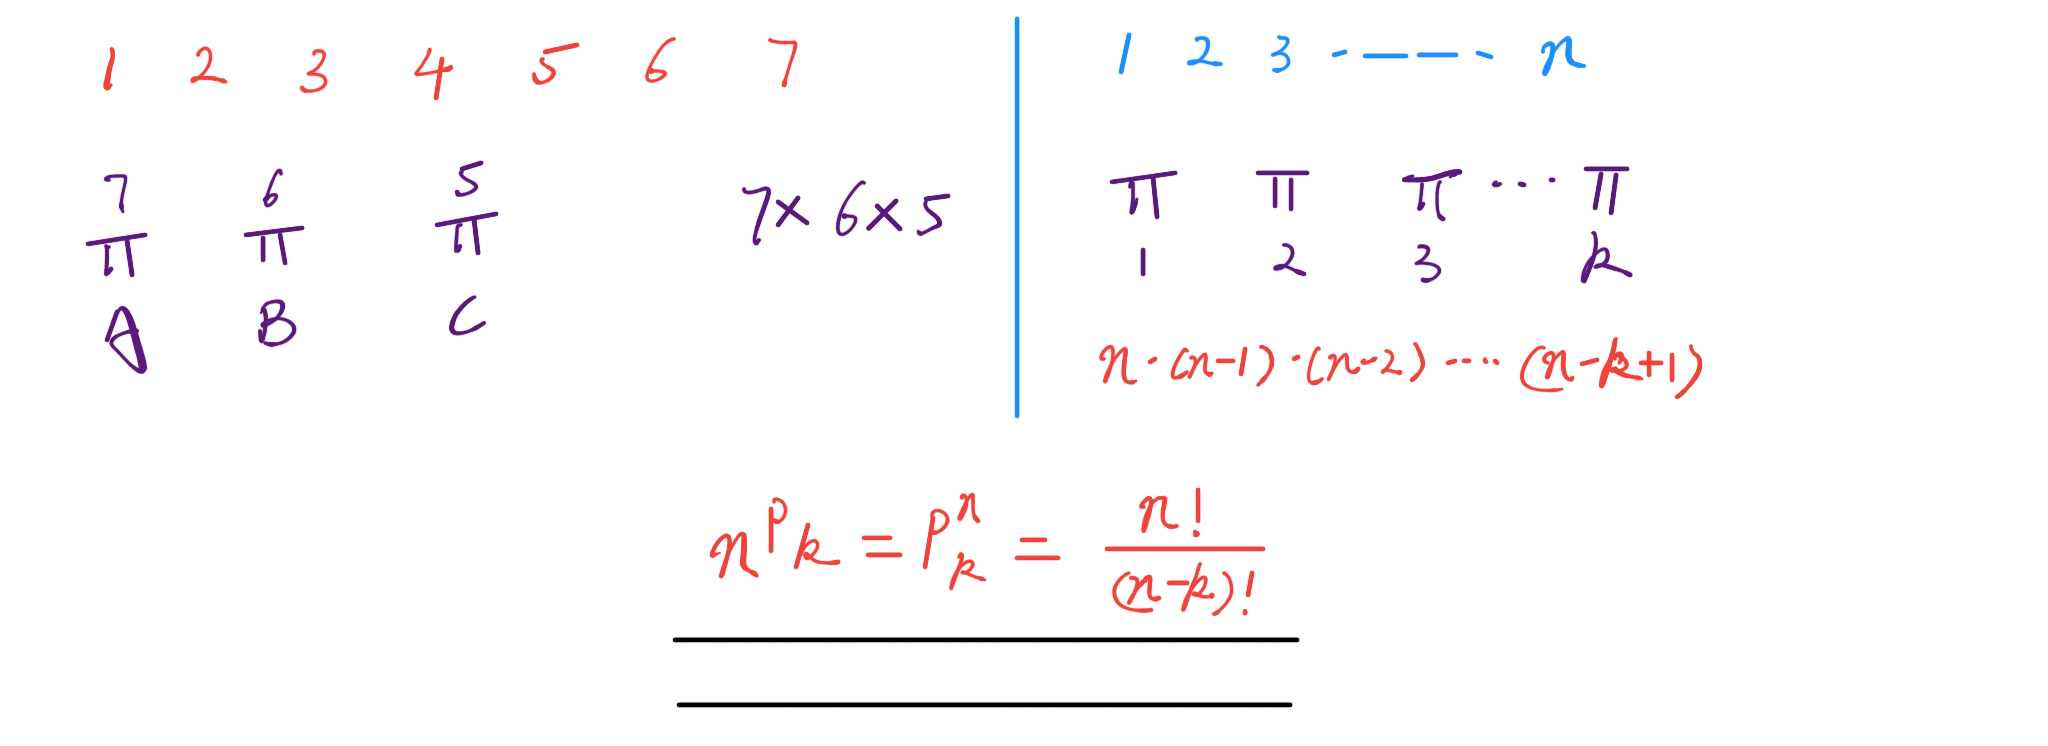 1 2 3 4 5 6 7
7 6 5
A B C
7 × 6 × 5
1 2 3 · — — · n
1 2 3 ... k
n · (n-1) · (n-2) ···· (n-k+1)
nPk = P^n_k = n! / (n-k)!